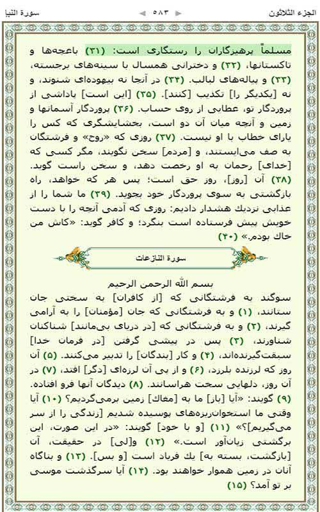 الجزء الثلاثون ٥٨٣ سورة النبإ
مسلماً پرهیزگاران را رستگاری است: (۳۱) باغچه‌ها و
تاکستانها، (۳۲) و دخترانی همسال با سینه‌های برجسته،
(۳۳) و پیاله‌های لبالب. (۳۴) در آنجا نه بیهوده‌ای شنوند، و
نه [یکدیگر را] تکذیب [کنند]. (۳۵) [این است] پاداشی از
پروردگار تو، عطایی از روی حساب. (۳۶) پروردگار آسمانها و
زمین و آنچه میان آن دو است، بخشایشگری که کس را
یارای خطاب با او نیست. (۳۷) روزی که «روح» و فرشتگان
به صف می‌ایستند، و [مردم] سخن نگویند، مگر کسی که
[خدای] رحمان به او رخصت دهد، و سخن راست گوید.
(۳۸) آن [روز]، روز حق است؛ پس هر که خواهد، راه
بازگشتی به سوی پروردگار خود بجوید. (۳۹) ما شما را از
عذابی نزدیك هشدار دادیم: روزی که آدمی آنچه را با دست
خویش پیش فرستاده است بنگرد؛ و کافر گوید: «کاش من
خاك بودم.» (۴۰)
سورة النازعات
بسم الله الرحمن الرحيم
سوگند به فرشتگانی که [از کافران] به سختی جان
ستانند، (۱) و به فرشتگانی که جان [مؤمنان] را به آرامی
گیرند، (۲) و به فرشتگانی که [در دریای بی‌مانند] شناکنان
شناورند، (۳) پس در پیشی گرفتن [در فرمان خدا]
سبقت‌گیرنده‌اند، (۴) و کار [بندگان] را تدبیر می‌کنند. (۵) آن
روز که لرزنده بلرزد، (۶) و از پی آن لرزه‌ای [دگر] افتد، (۷) در
آن روز، دلهایی سخت هراسانند. (۸) دیدگان آنها فرو افتاده.
(۹) گویند: «آیا [باز] ما به [مغاك] زمین برمی‌گردیم؟ (۱۰) آیا
وقتی ما استخوان‌ریزه‌های پوسیده شدیم [زندگی را از سر
می‌گیریم]؟» (۱۱) [و با خود] گویند: «در این صورت، این
برگشتی زیان‌آور است.» (۱۲) و[لی] در حقیقت، آن
[بازگشت، بسته به] یك فریاد است [و بس]. (۱۳) و بناگاه
آنان در زمین هموار خواهند بود. (۱۴) آیا سرگذشت موسی
بر تو آمد؟ (۱۵)